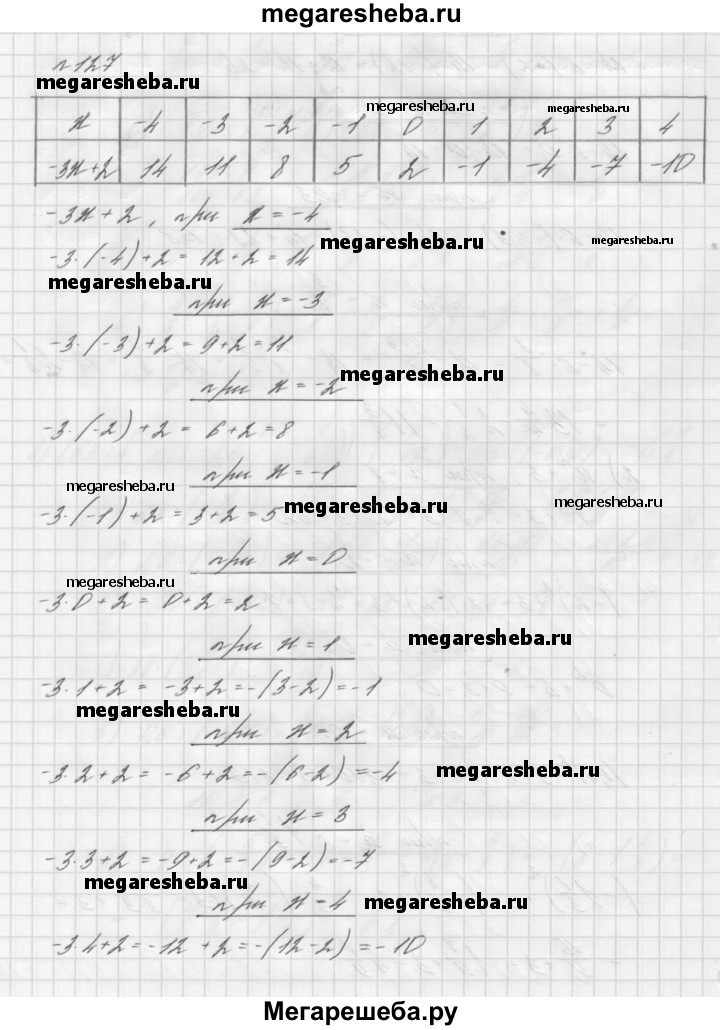 megaresheba.ru
№127
megaresheba.ru
megaresheba.ru megaresheba.ru
x -4 -3 -2 -1 0 1 2 3 4
-3x+2 14 11 8 5 2 -1 -4 -7 -10
-3x+2, при x=-4
megaresheba.ru megaresheba.ru
-3·(-4)+2=12+2=14
megaresheba.ru
при x=-3
-3·(-3)+2=9+2=11
при x=-2 megaresheba.ru
-3·(-2)+2=6+2=8
при x=-1
megaresheba.ru megaresheba.ru megaresheba.ru
-3·(-1)+2=3+2=5
при x=0
megaresheba.ru
-3·0+2=0+2=2
при x=1 megaresheba.ru
-3·1+2=-3+2=-(3-2)=-1
megaresheba.ru
при x=2
-3·2+2=-6+2=-(6-2)=-4 megaresheba.ru
при x=3
-3·3+2=-9+2=-(9-2)=-7
megaresheba.ru
при x-4 megaresheba.ru
-3·4+2=-12+2=-(12-2)=-10
Мегарешеба.ру